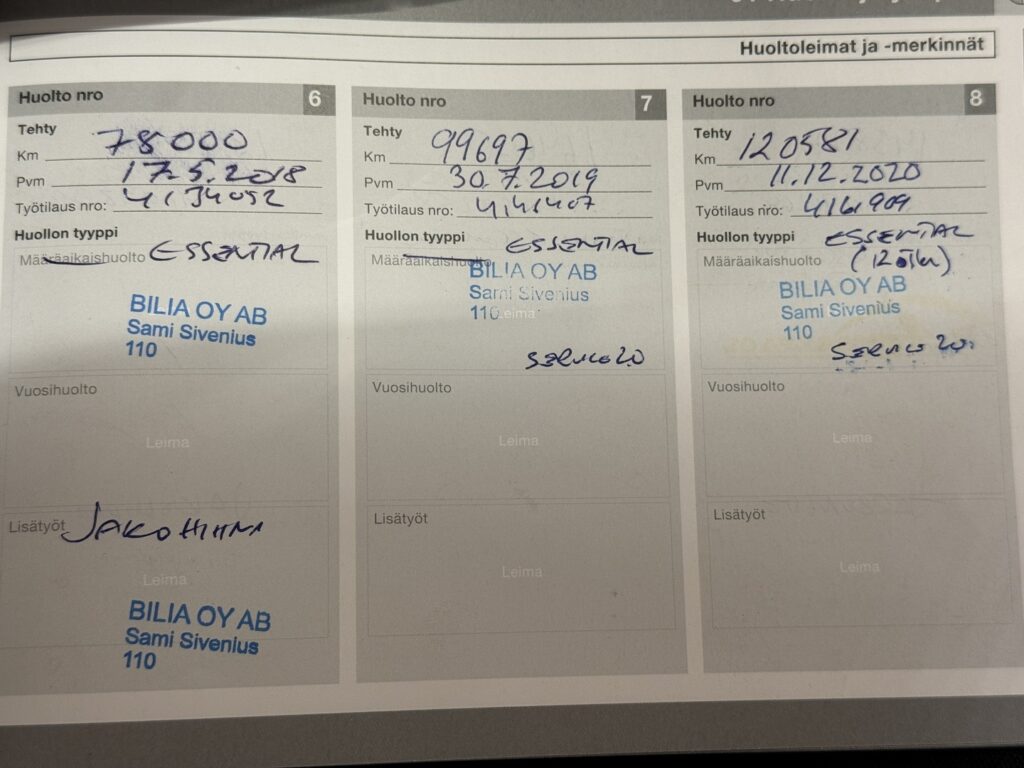 Huoltoleimat ja -merkinnät
Huolto nro 6
Tehty
Km 78000
Pvm 17.5.2018
Työtilaus nro: 4134052
Huollon tyyppi
Määräaikaishuolto ESSENTIAL
BILIA OY AB
Sami Sivenius
110
Vuosihuolto
Leima
Lisätyöt JAKOHIHNA
Leima
BILIA OY AB
Sami Sivenius
110
Huolto nro 7
Tehty
Km 99697
Pvm 30.7.2019
Työtilaus nro: 4141407
Huollon tyyppi ESSENTIAL
Määräaikaishuolto
BILIA OY AB
Sami Sivenius
110 Leima
SERVICE 2.0
Vuosihuolto
Leima
Lisätyöt
Leima
Huolto nro 8
Tehty
Km 120581
Pvm 11.12.2020
Työtilaus nro: 4161909
Huollon tyyppi ESSENTIAL
Määräaikaishuolto
BILIA OY AB
Sami Sivenius
110
SERVICE 2.0
Vuosihuolto
Leima
Lisätyöt
Leima